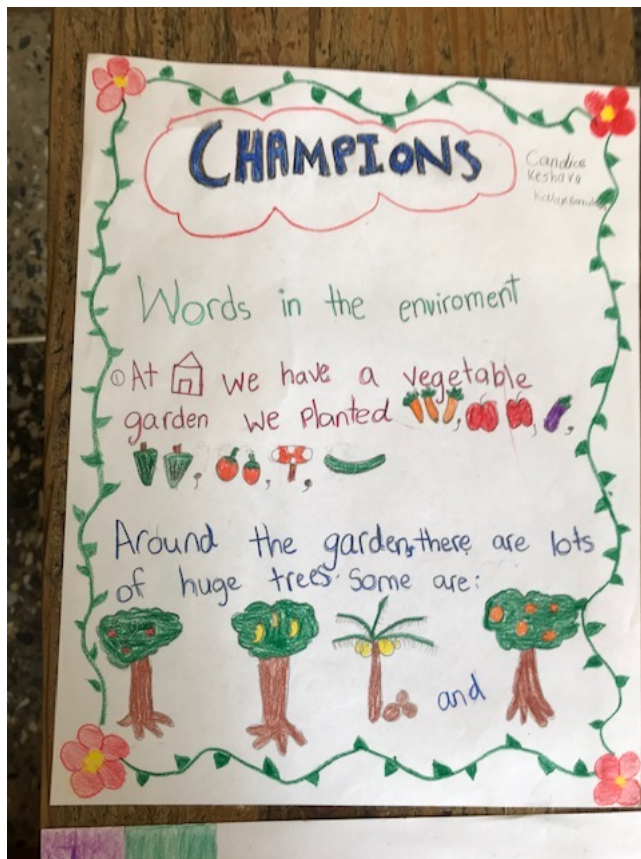 CHAMPIONS
Candice
Keshava
Words in the enviroment
① At we have a vegetable
garden we planted , , ,
, , ,
Around the garden, there are lots
of huge trees. Some are:
and